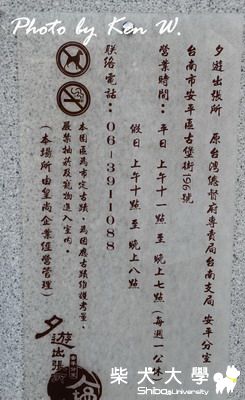 Photo by Ken W.
夕遊出張所 原台灣總督府專賣局台南支局 安平分室
台南市安平區古堡街196號
營業時間：平日 上午十一點 至 晚上七點（每週一公休）
假日 上午十點 至 晚上八點
聯絡電話：06-3911088
本園區為市定古蹟，為因應古蹟維護考量，
嚴禁抽菸及寵物進入室內。
（本場所由皇尚企業經營管理）
夕遊出張所
柴犬大學
Shiba@University